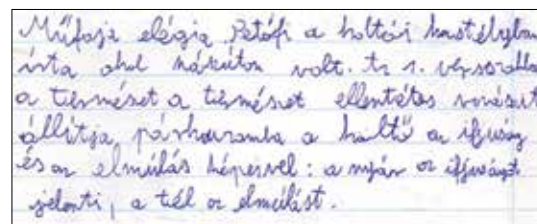 Műfaja elégia Petőfi a koltói kastélyban
írta ahol nászúton volt. Az 1. versszakba
a természet a természet ellentétes vonásait
állítja párhuzamba a költő az ifjúság
és az elmúlás képeivel: a nyár az ifjúságot
jelenti, a tél az elmúlást.